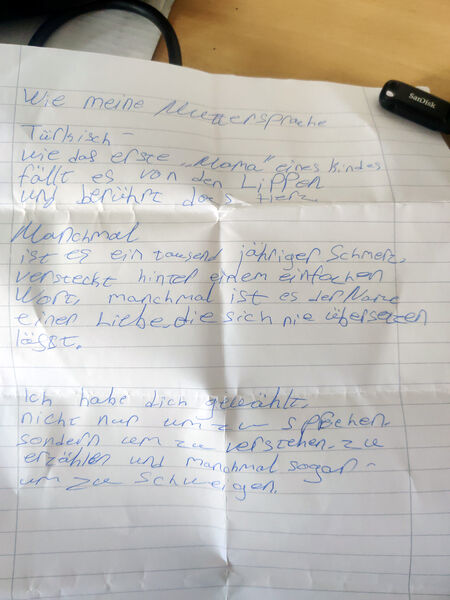 SanDisk
Wie meine Muttersprache
Türkisch –
wie das erste „Mama" eines Kindes
fällt es von den Lippen
und berührt das Herz.
Manchmal
ist es ein tausend jähriger Schmerz,
versteckt hinter einem einfachen
Wort, manchmal ist es der Name
einer Liebe, die sich nie übersetzen
läßt.
Ich habe dich gewählt,
nicht nur um zu sprechen.
sondern um zu verstehen. zu
erzählen und manchmal sogar –
um zu schweigen.